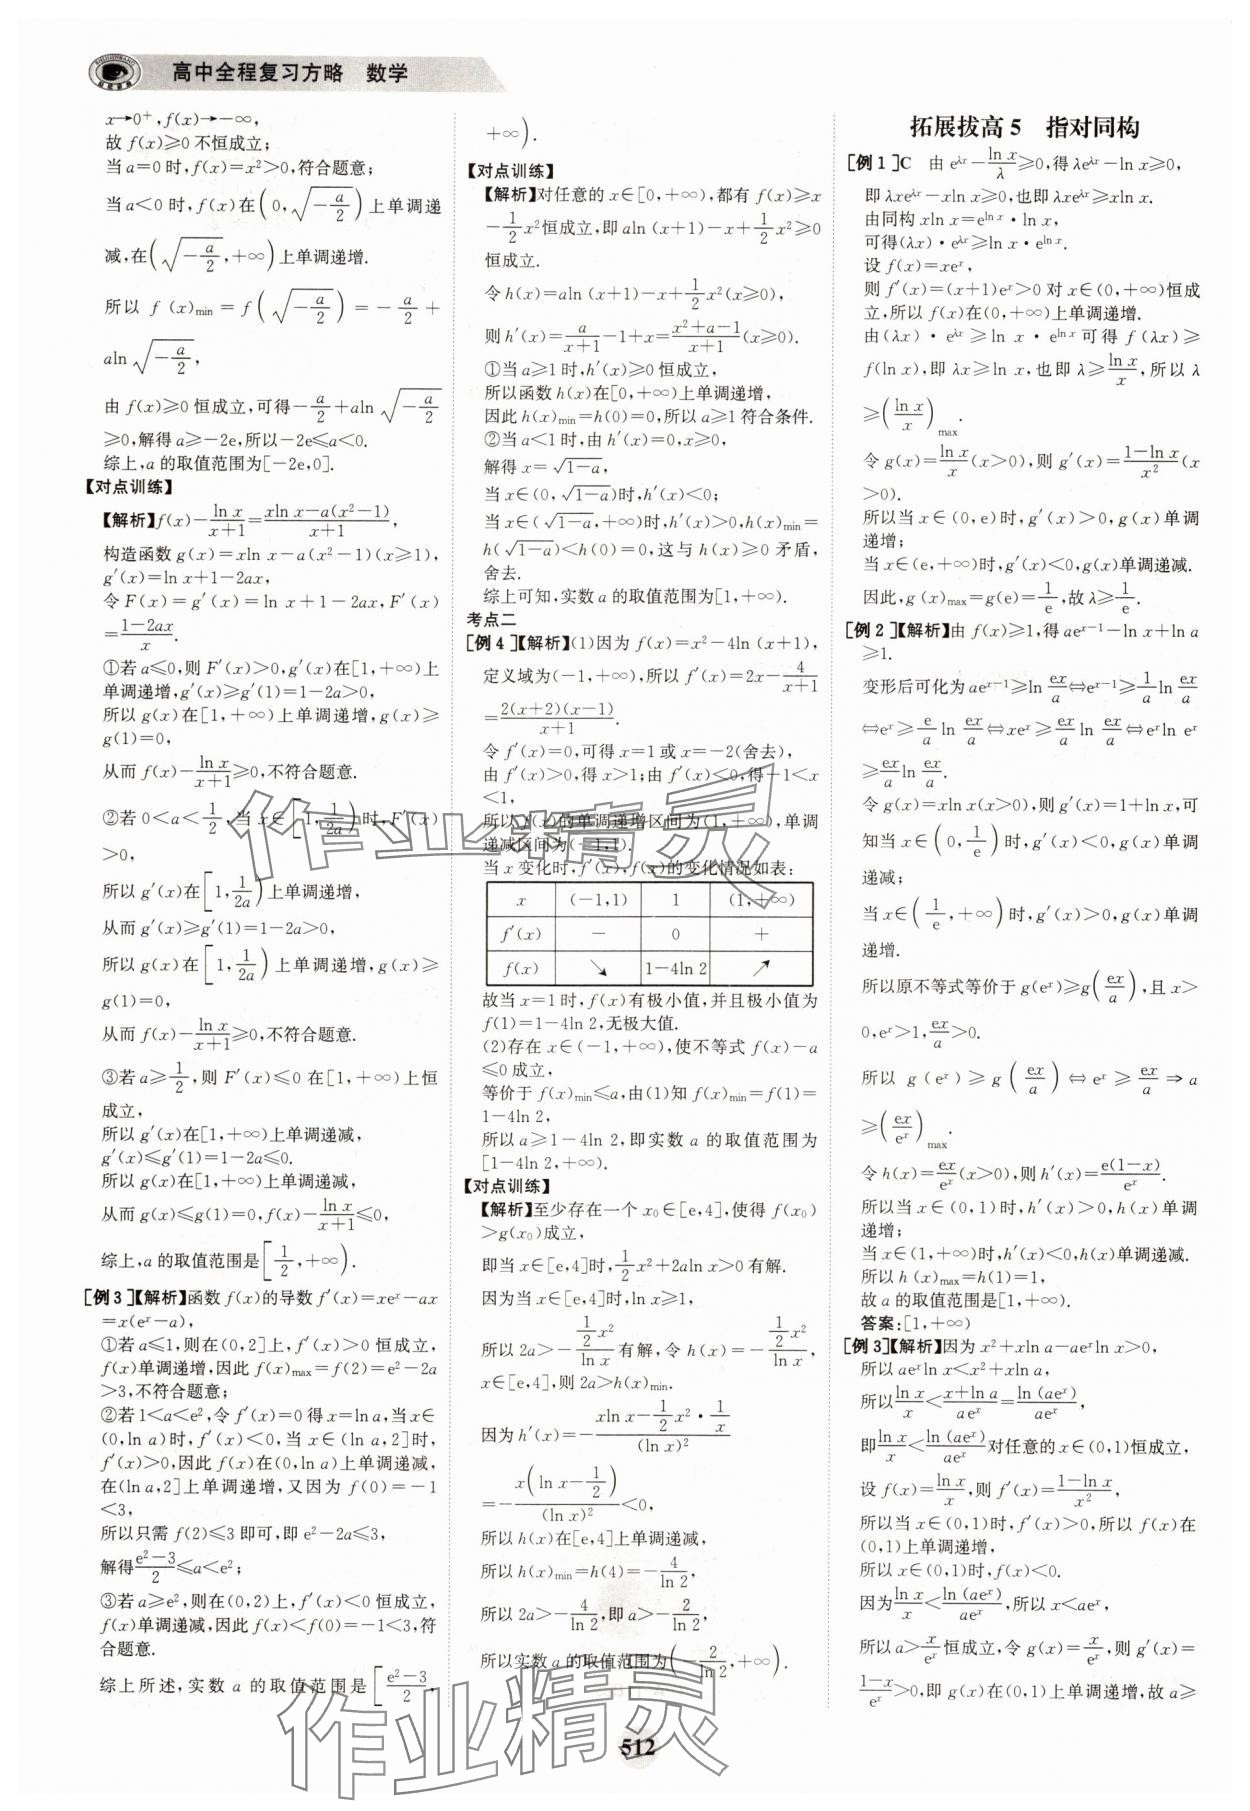 高中全程复习方略　数学
x→0⁺,f(x)→−∞,
故 f(x)≥0 不恒成立;
当 a=0 时,f(x)=x²>0,符合题意;
当 a<0 时,f(x)在(0,√(−a/2))上单调递
减,在(√(−a/2),+∞)上单调递增.
所以 f (x)min = f(√(−a/2)) = −a/2 +
aln√(−a/2),
由 f(x)≥0 恒成立,可得−a/2+aln√(−a/2)
≥0,解得 a≥−2e,所以−2e≤a<0.
综上,a 的取值范围为[−2e,0].
【对点训练】
【解析】f(x)−ln x/(x+1)=(xln x−a(x²−1))/(x+1),
构造函数 g(x)=xln x−a(x²−1)(x≥1),
g′(x)=ln x+1−2ax,
令 F(x)=g′(x)=ln x+1−2ax,F′(x)
=(1−2ax)/x.
①若 a≤0,则 F′(x)>0,g′(x)在[1,+∞)上
单调递增,g′(x)≥g′(1)=1−2a>0,
所以 g(x)在[1,+∞)上单调递增,g(x)≥
g(1)=0,
从而 f(x)−ln x/(x+1)≥0,不符合题意.
②若 0<a<1/2,当 x∈[1,1/2a)时,F′(x)
>0,
所以 g′(x)在[1,1/2a)上单调递增,
从而 g′(x)≥g′(1)=1−2a>0,
所以 g(x)在[1,1/2a)上单调递增,g(x)≥
g(1)=0,
从而 f(x)−ln x/(x+1)≥0,不符合题意.
③若 a≥1/2,则 F′(x)≤0 在[1,+∞)上恒
成立,
所以 g′(x)在[1,+∞)上单调递减,
g′(x)≤g′(1)=1−2a≤0.
所以 g(x)在[1,+∞)上单调递减,
从而 g(x)≤g(1)=0,f(x)−ln x/(x+1)≤0,
综上,a 的取值范围是[1/2,+∞).
[例 3]【解析】函数 f(x)的导数 f′(x)=xeˣ−ax
=x(eˣ−a),
①若 a≤1,则在(0,2]上,f′(x)>0 恒成立,
f(x)单调递增,因此 f(x)max=f(2)=e²−2a
>3,不符合题意;
②若 1<a<e²,令 f′(x)=0 得 x=ln a,当 x∈
(0,ln a)时,f′(x)<0,当 x∈(ln a,2]时,
f′(x)>0,因此 f(x)在(0,ln a)上单调递减,
在(ln a,2]上单调递增,又因为 f(0)=−1
<3,
所以只需 f(2)≤3 即可,即 e²−2a≤3,
解得(e²−3)/2≤a<e²;
③若 a≥e²,则在(0,2)上,f′(x)<0 恒成立,
f(x)单调递减,因此 f(x)<f(0)=−1<3,符
合题意.
综上所述,实数 a 的取值范围是[(e²−3)/2,
+∞).
【对点训练】
【解析】对任意的 x∈[0,+∞),都有 f(x)≥x
−1/2x²恒成立,即 aln (x+1)−x+1/2x²≥0
恒成立.
令 h(x)=aln (x+1)−x+1/2x²(x≥0),
则 h′(x)=a/(x+1)−1+x=(x²+a−1)/(x+1)(x≥0).
①当 a≥1 时,h′(x)≥0 恒成立,
所以函数 h(x)在[0,+∞)上单调递增,
因此 h(x)min=h(0)=0,所以 a≥1 符合条件.
②当 a<1 时,由 h′(x)=0,x≥0,
解得 x=√(1−a),
当 x∈(0,√(1−a))时,h′(x)<0;
当 x∈(√(1−a),+∞)时,h′(x)>0,h(x)min=
h(√(1−a))<h(0)=0,这与 h(x)≥0 矛盾,
舍去.
综上可知,实数 a 的取值范围为[1,+∞).
考点二
[例 4]【解析】(1)因为 f(x)=x²−4ln (x+1),
定义域为(−1,+∞),所以 f′(x)=2x−4/(x+1)
=2(x+2)(x−1)/(x+1).
令 f′(x)=0,可得 x=1 或 x=−2(舍去),
由 f′(x)>0,得 x>1;由 f′(x)<0,得−1<x
<1,
所以 f(x)的单调递增区间为(1,+∞),单调
递减区间为(−1,1).
当 x 变化时,f′(x),f(x)的变化情况如表:
x (−1,1) 1 (1,+∞)
f′(x) − 0 +
f(x) ↘ 1−4ln 2 ↗
故当 x=1 时,f(x)有极小值,并且极小值为
f(1)=1−4ln 2,无极大值.
(2)存在 x∈(−1,+∞),使不等式 f(x)−a
≤0 成立,
等价于 f(x)min≤a,由(1)知 f(x)min=f(1)=
1−4ln 2,
所以 a≥1−4ln 2,即实数 a 的取值范围为
[1−4ln 2,+∞).
【对点训练】
【解析】至少存在一个 x₀∈[e,4],使得 f(x₀)
>g(x₀)成立,
即当 x∈[e,4]时,1/2x²+2aln x>0 有解.
因为当 x∈[e,4]时,ln x≥1,
所以 2a>−(1/2x²)/ln x 有解,令 h(x)=−(1/2x²)/ln x,
x∈[e,4],则 2a>h(x)min.
因为 h′(x)=−(xln x−1/2x²·1/x)/(ln x)²
=−x(ln x−1/2)/(ln x)²<0,
所以 h(x)在[e,4]上单调递减,
所以 h(x)min=h(4)=−4/ln 2,
所以 2a>−4/ln 2,即 a>−2/ln 2,
所以实数 a 的取值范围为(−2/ln 2,+∞).
拓展拔高 5　指对同构
[例 1]C　由 e^λx−ln x/λ≥0,得 λe^λx−ln x≥0,
即 λxe^λx−xln x≥0,也即 λxe^λx≥xln x.
由同构 xln x=e^ln x·ln x,
可得(λx)·e^λx≥ln x·e^ln x.
设 f(x)=xeˣ,
则 f′(x)=(x+1)eˣ>0 对 x∈(0,+∞)恒成
立,所以 f(x)在(0,+∞)上单调递增.
由(λx)·e^λx≥ln x·e^ln x 可得 f(λx)≥
f(ln x),即 λx≥ln x,也即 λ≥ln x/x,所以 λ
≥(ln x/x)max.
令 g(x)=ln x/x(x>0),则 g′(x)=(1−ln x)/x²(x
>0).
所以当 x∈(0,e)时,g′(x)>0,g(x)单调
递增;
当 x∈(e,+∞)时,g′(x)<0,g(x)单调递减.
因此,g(x)max=g(e)=1/e,故 λ≥1/e.
[例 2]【解析】由 f(x)≥1,得 aeˣ⁻¹−ln x+ln a
≥1.
变形后可化为 aeˣ⁻¹≥ln ex/a⇔eˣ⁻¹≥1/a ln ex/a
⇔eˣ≥e/a ln ex/a⇔xeˣ≥ex/a ln ex/a⇔eˣln eˣ
≥ex/a ln ex/a.
令 g(x)=xln x(x>0),则 g′(x)=1+ln x,可
知当 x∈(0,1/e)时,g′(x)<0,g(x)单调
递减;
当 x∈(1/e,+∞)时,g′(x)>0,g(x)单调
递增.
所以原不等式等价于 g(eˣ)≥g(ex/a),且 x>
0,eˣ>1,ex/a>0.
所以 g(eˣ)≥g(ex/a)⇔eˣ≥ex/a⇒a
≥(ex/eˣ)max.
令 h(x)=ex/eˣ(x>0),则 h′(x)=e(1−x)/eˣ.
所以当 x∈(0,1)时,h′(x)>0,h(x)单调
递增;
当 x∈(1,+∞)时,h′(x)<0,h(x)单调递减.
所以 h(x)max=h(1)=1,
故 a 的取值范围是[1,+∞).
答案:[1,+∞)
[例 3]【解析】因为 x²+xln a−aeˣln x>0,
所以 aeˣln x<x²+xln a,
所以 ln x/x<(x+ln a)/aeˣ=ln (aeˣ)/aeˣ,
即 ln x/x<ln (aeˣ)/aeˣ 对任意的 x∈(0,1)恒成立,
设 f(x)=ln x/x,则 f′(x)=(1−ln x)/x²,
所以当 x∈(0,1)时,f′(x)>0,所以 f(x)在
(0,1)上单调递增,
所以 x∈(0,1)时,f(x)<0.
因为 ln x/x<ln (aeˣ)/aeˣ,所以 x<aeˣ,
所以 a>x/eˣ 恒成立,令 g(x)=x/eˣ,则 g′(x)=
(1−x)/eˣ>0,即 g(x)在(0,1)上单调递增,故 a≥
512
作业精灵
作业精灵